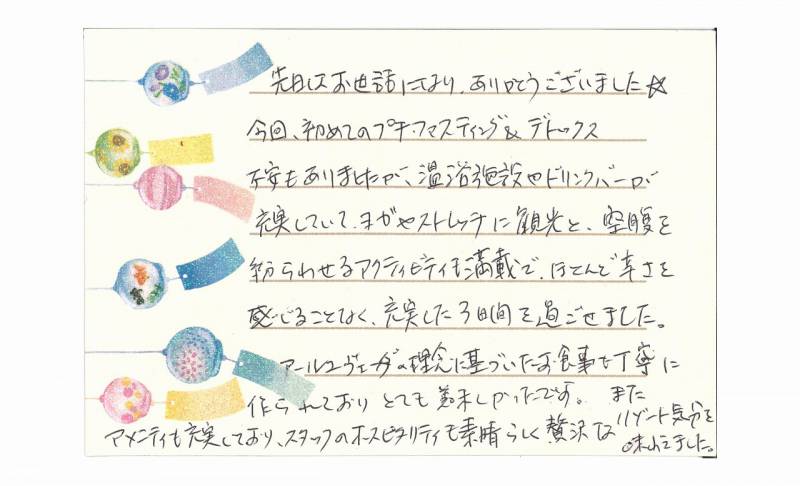 先日はお世話になり、ありがとうございました☆
今回、初めてのプチ・ファスティング&デトックス
不安もありましたが、温浴施設やドリンクバーが
充実していて、ヨガやストレッチに観光と、空腹を
紛らわせるアクティビティも満載で、ほとんど辛さを
感じることなく、充実した3日間を過ごせました。
アールユーヴェーダの理念に基づいたお食事も丁寧に
作られておりとても美味しかったです。また
アメニティも充実しており、スタッフのホスピタリティも素晴らしく贅沢なリゾート気分を
味わえました。